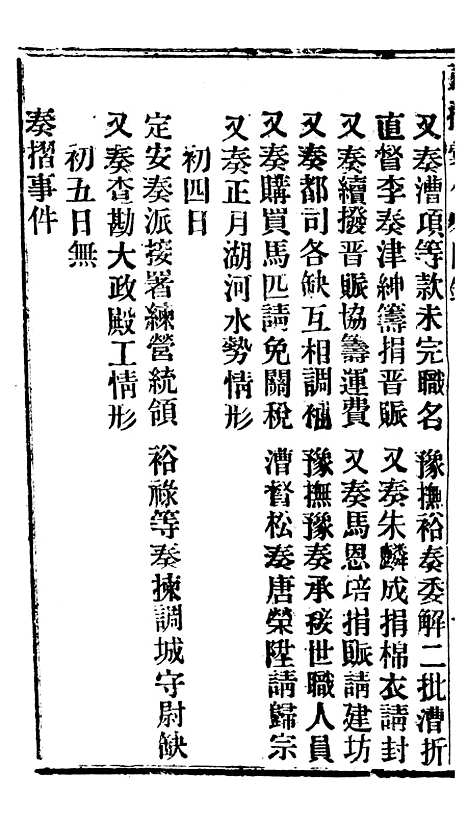 又奏漕項等款未完職名　豫撫裕奏委解二批漕折
直督李奏津紳籌捐晋賑　又奏朱麟成捐棉衣請封
又奏續撥晋賑協籌運費　又奏馬恩培捐賑請建坊
又奏都司各缺互相調補　豫撫豫奏承接世職人員
又奏購買馬匹請免關稅　漕督松奏唐榮陞請歸宗
又奏正月湖河水勢情形
初四日
定安奏派接署練營統領　裕祿等奏揀調城守尉缺
又奏查勘大政殿工情形
初五日無
奏摺事件